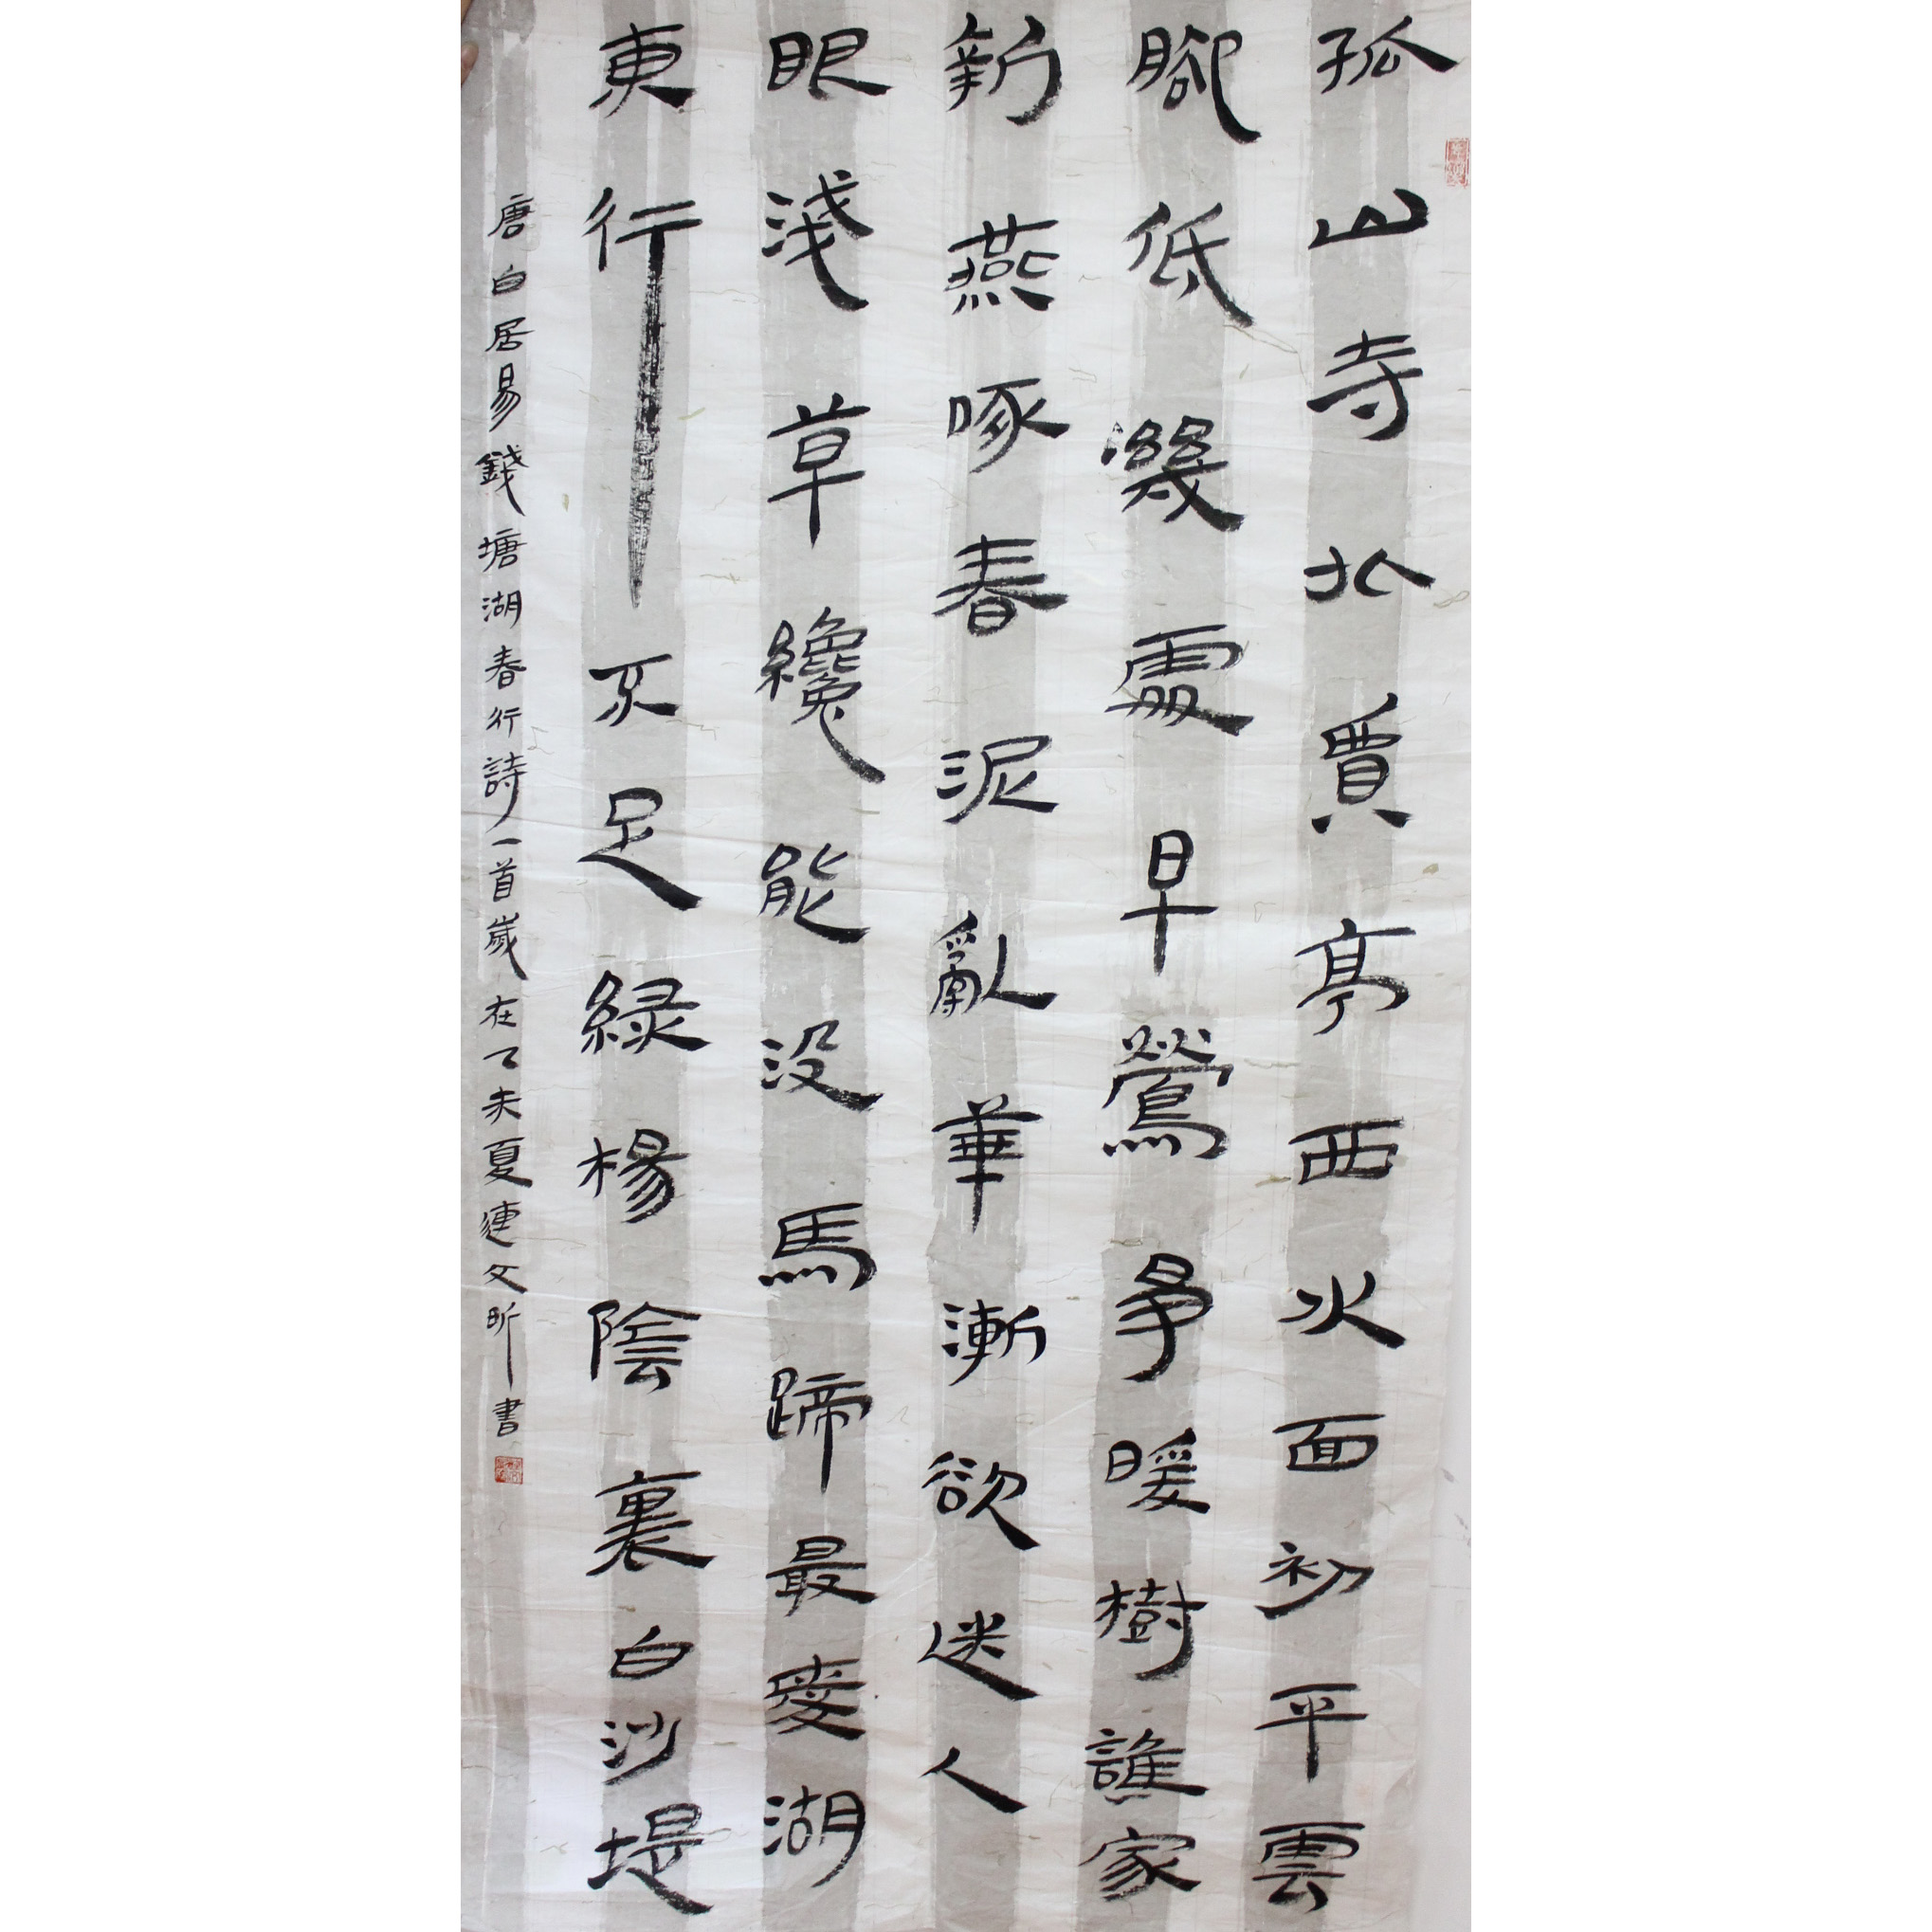 孤山寺北賈亭西水面初平雲
腳低幾處早鶯爭暖樹誰家
新燕啄春泥亂華漸欲迷人
眼淺草纔能没馬蹄最愛湖
東行不足緑楊陰裏白沙堤
唐白居易錢塘湖春行詩一首歲在乙未夏連文昕書